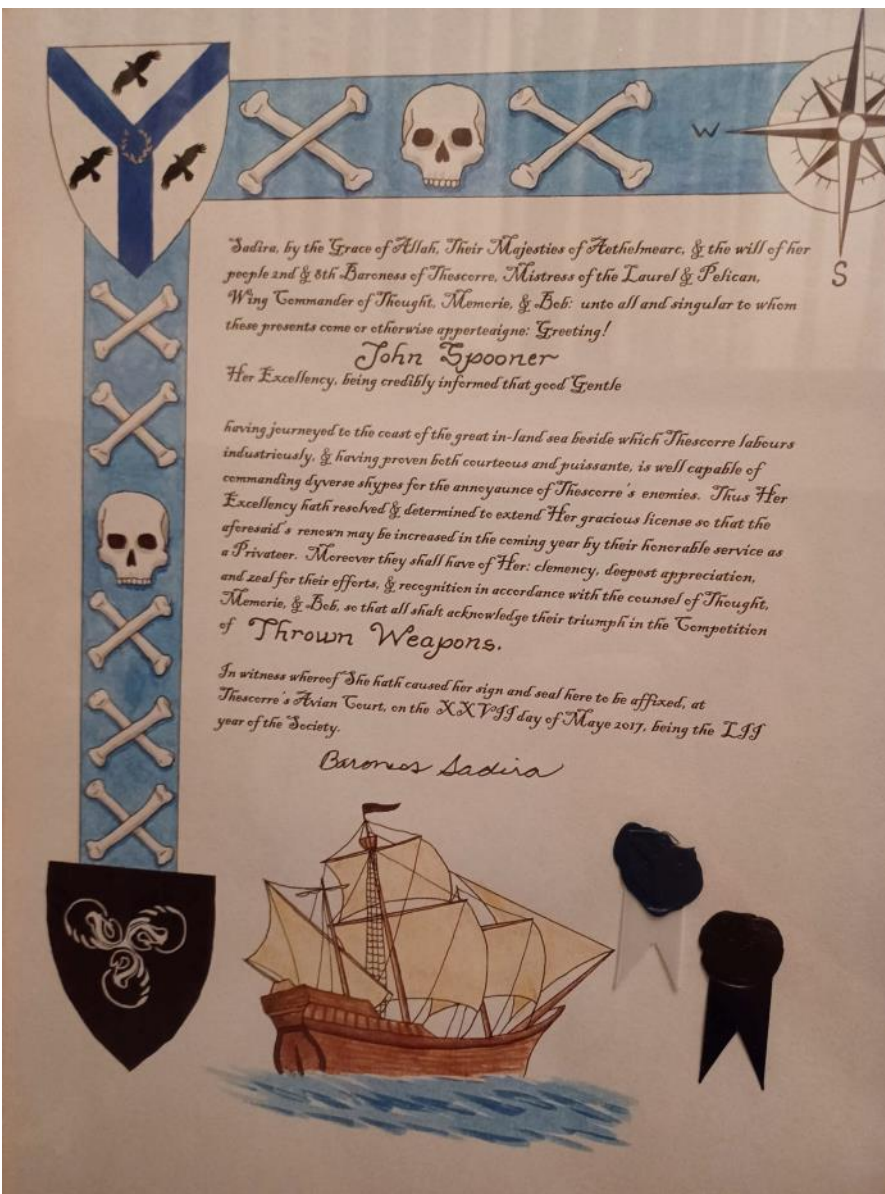 W
S
Sadira, by the Grace of Allah, Their Majesties of Aethelmearc, & the will of her
people 2nd & 8th Baroness of Thescorre, Mistress of the Laurel & Pelican,
Wing Commander of Thought, Memorie, & Bob: unto all and singular to whom
these presents come or otherwise apperteaigne: Greeting!
John Spooner
Her Excellency, being credibly informed that good Gentle
having journeyed to the coast of the great in-land sea beside which Thescorre labours
industriously, & having proven both courteous and puissante, is well capable of
commanding dyverse shypes for the annoyaunce of Thescorre's enemies. Thus Her
Excellency hath resolved & determined to extend Her gracious license so that the
aforesaid's renown may be increased in the coming year by their honorable service as
a Privateer. Moreover they shall have of Her: clemency, deepest appreciation,
and zeal for their efforts, & recognition in accordance with the counsel of Thought,
Memorie, & Bob, so that all shalt acknowledge their triumph in the Competition
of Thrown Weapons.
In witness whereof She hath caused her sign and seal here to be affixed, at
Thescorre's Avian Court, on the XXVII day of Maye 2017, being the LII
year of the Society.
Baroness Sadira